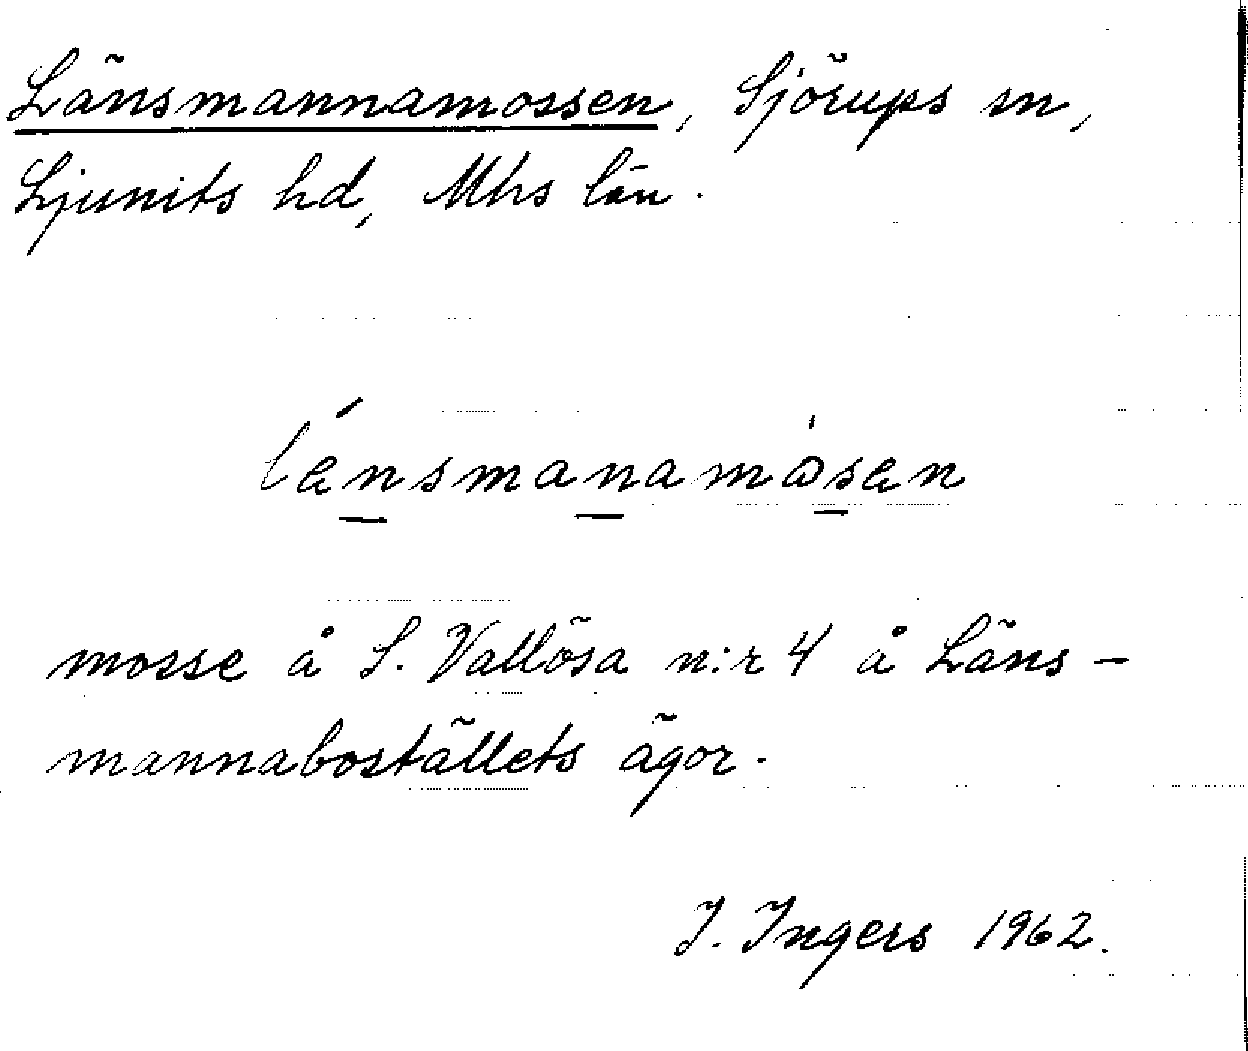 Länsmannamossen, Sjörups sn,
Ljunits hd, Mhs län.
lánsmanamåsen
mosse å S. Vallösa n:r 4 å Läns-
mannaboställets ägor.
I. Ingers 1962.